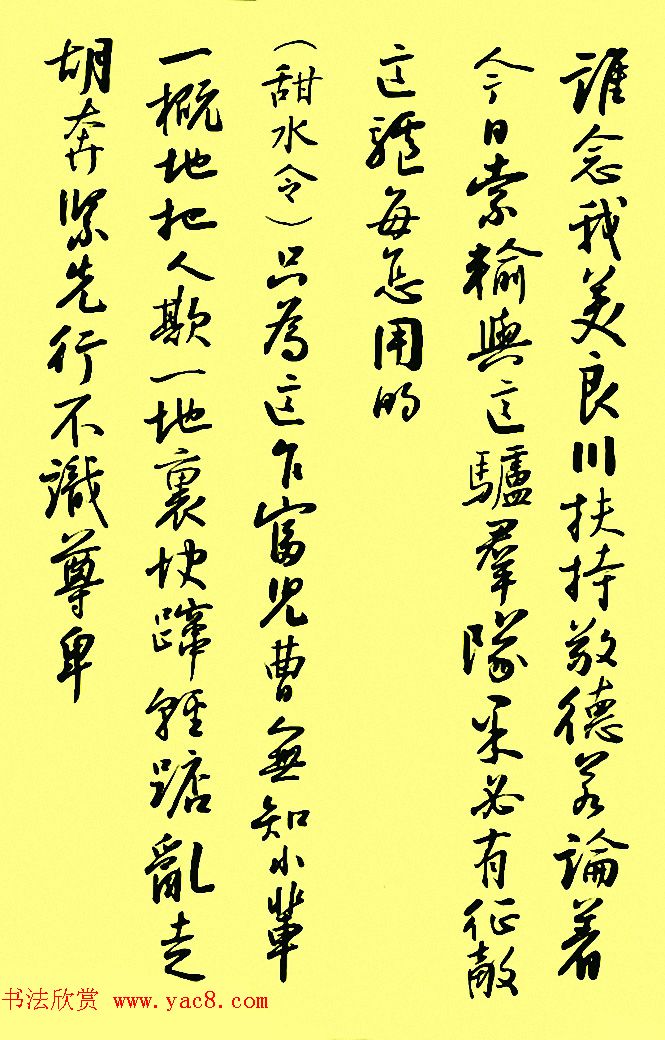 誰念我美良川扶持敬德若論着
今日索輸與這驢羣隊果必有征敵
这驢每怎用的
（甜水令）只為这乍富兒曹無知小輩
一概地把人欺一地裏快蹄輕踮亂走
胡奔緊先行不識尊卑
书法欣赏 www.yac8.com